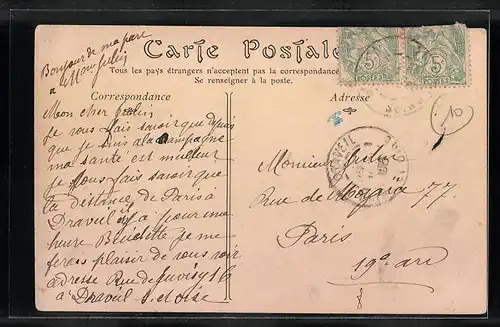 Bonjour de ma part
a Mon
Carte Postale
Tous les pays étrangers n'acceptent pas la correspondance
Se renseigner à la poste.
Correspondance
Adresse
Mon cher
Je vous fais savoir que depuis
que je suis a la campagne
ma santé est meilleur
je vous fais savoir que
la distance de Paris à
Draveil il y a pour une
heure je me
ferais plaisir de vous voir
adresse Rue de Juvisy 16
a Draveil S. et Oise
5
POSTES
5
POSTES
10
DRAVEIL
Monsieur
Rue de 77
Paris
19e arr